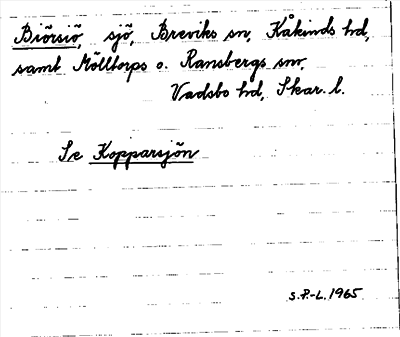 Biörsiö, sjö, Breviks sn, Kåkinds hd,
samt Mölltorps o. Ransbergs snr,
Vadsbo hd, Skar. l.
Se Kopparsjön
S.P.-L. 1965